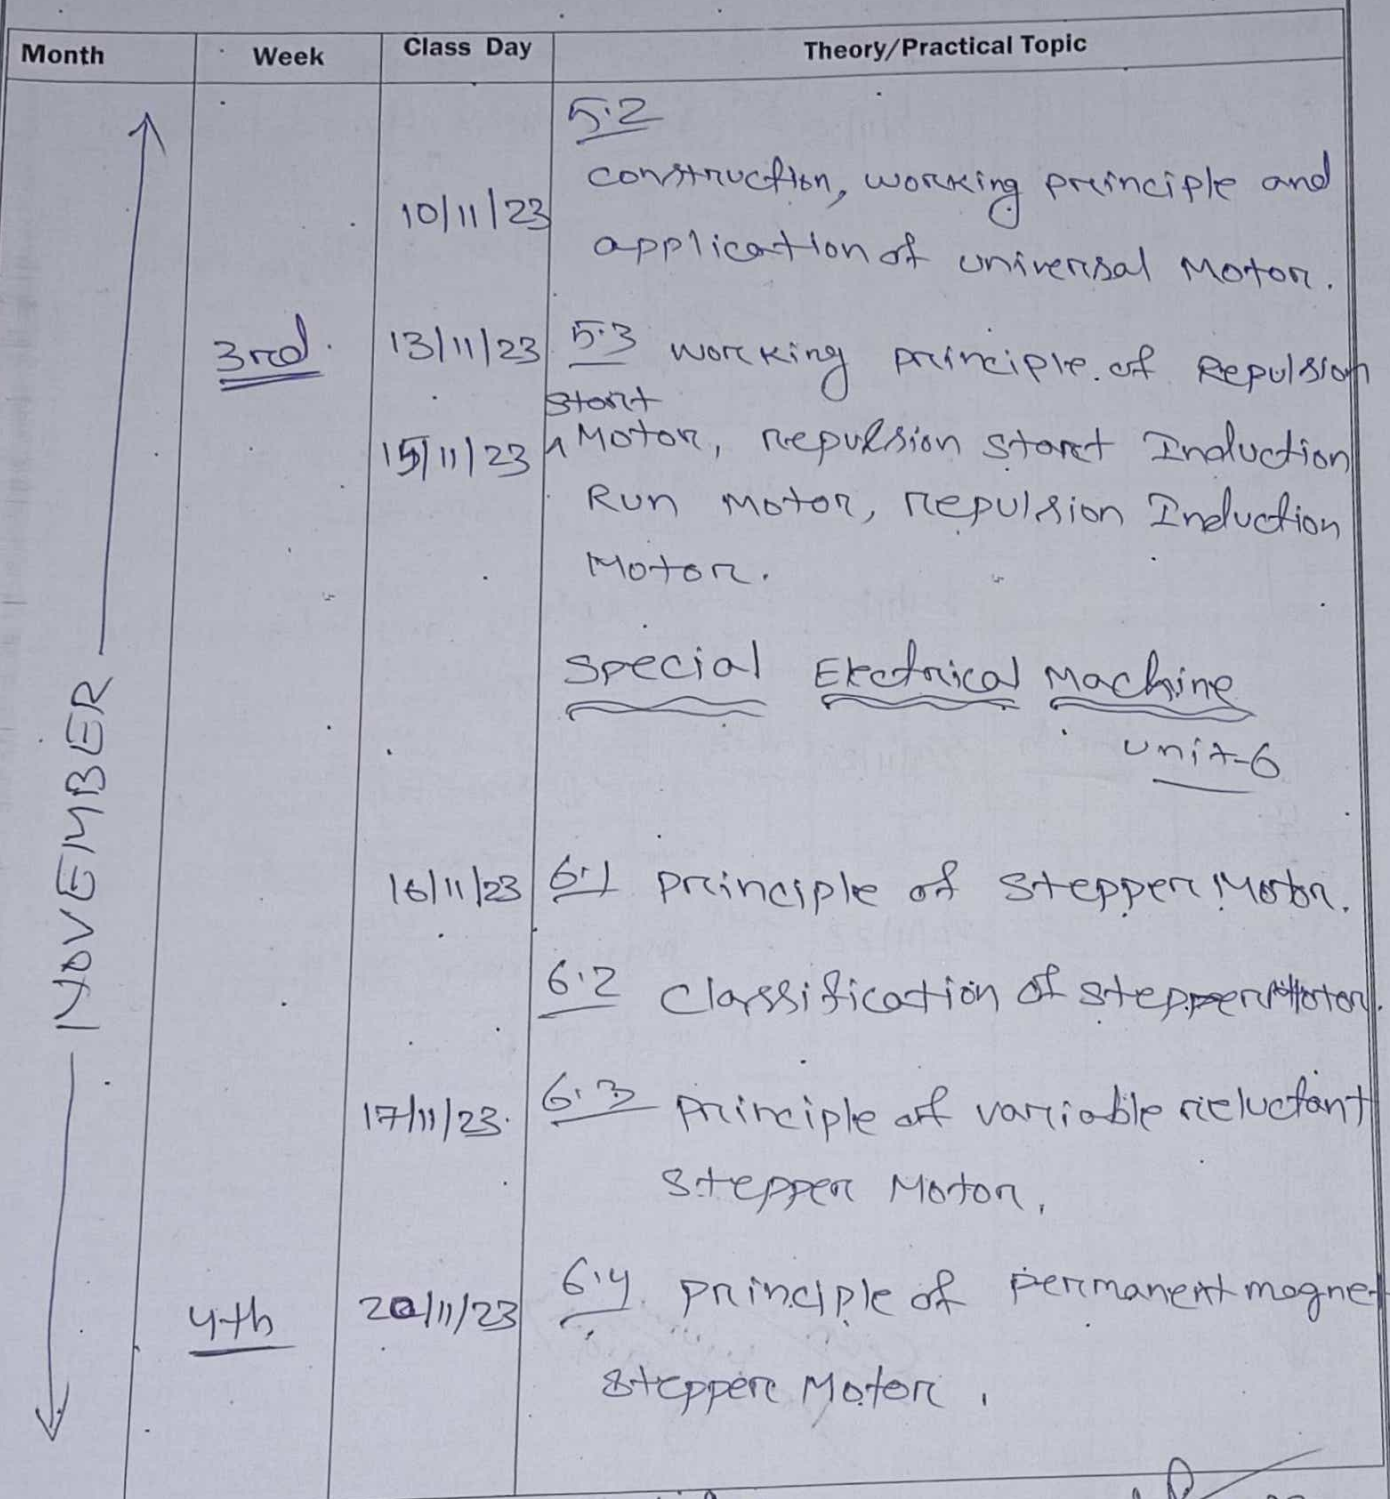 Month Week Class Day Theory/Practical Topic
5.2
construction, working principle and
10/11/23
application of universal Motor.
3rd. 13/11/23 5.3 working principle of Repulsion
start
15/11/23 ^ Motor, repulsion start Induction
Run Motor, repulsion Induction
Motor.
NOVEMBER
Special Electrical Machine
unit-6
16/11/23 6.1 principle of stepper Motor.
6.2 classification of stepper Motor.
17/11/23. 6.3 principle of variable reluctant
stepper Motor.
4th 20/11/23 6.4 principle of permanent magnet
stepper Motor.